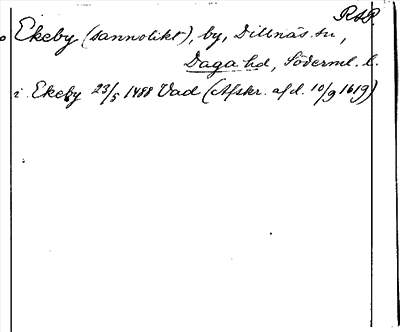 RAP.
Ekeby (sannolikt), by, Dillnäs sn,
Daga hd, Söderml. l.
i Ekeby 23/5 1488 Vad (Afskr. af d. 10/9 1619)